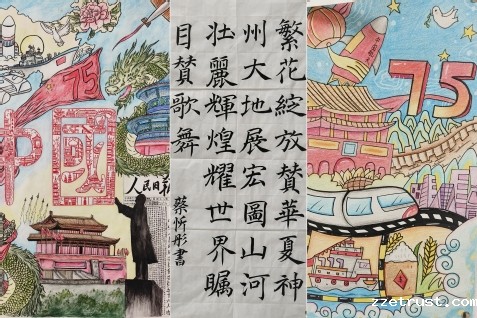 75
中國
人民日
繁花綻放贊華夏神
州大地展宏圖山河
壯麗輝煌耀世界矚
目贊歌舞
蔡忻彤書
75
zzetrust.com